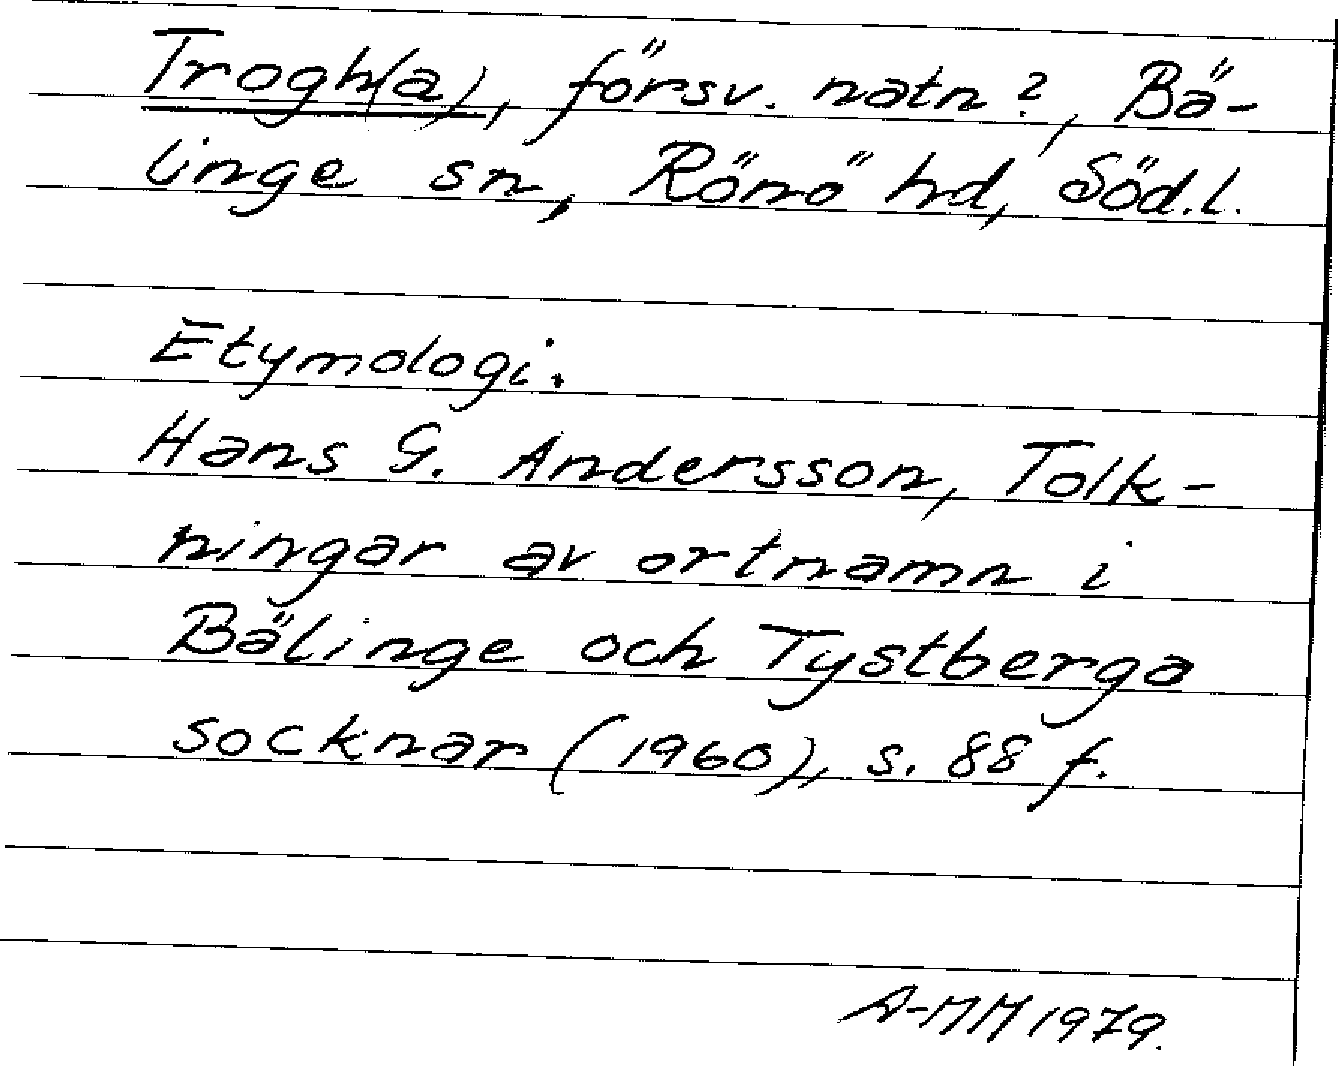 Trogh(a), försv. natn?, Bä-
linge sn, Rönö hd, Söd.l.
Etymologi.
Hans G. Andersson, Tolk-
ningar av ortnamn i
Bälinge och Tystberga
socknar (1960), s. 88 f.
A-MM 1979.